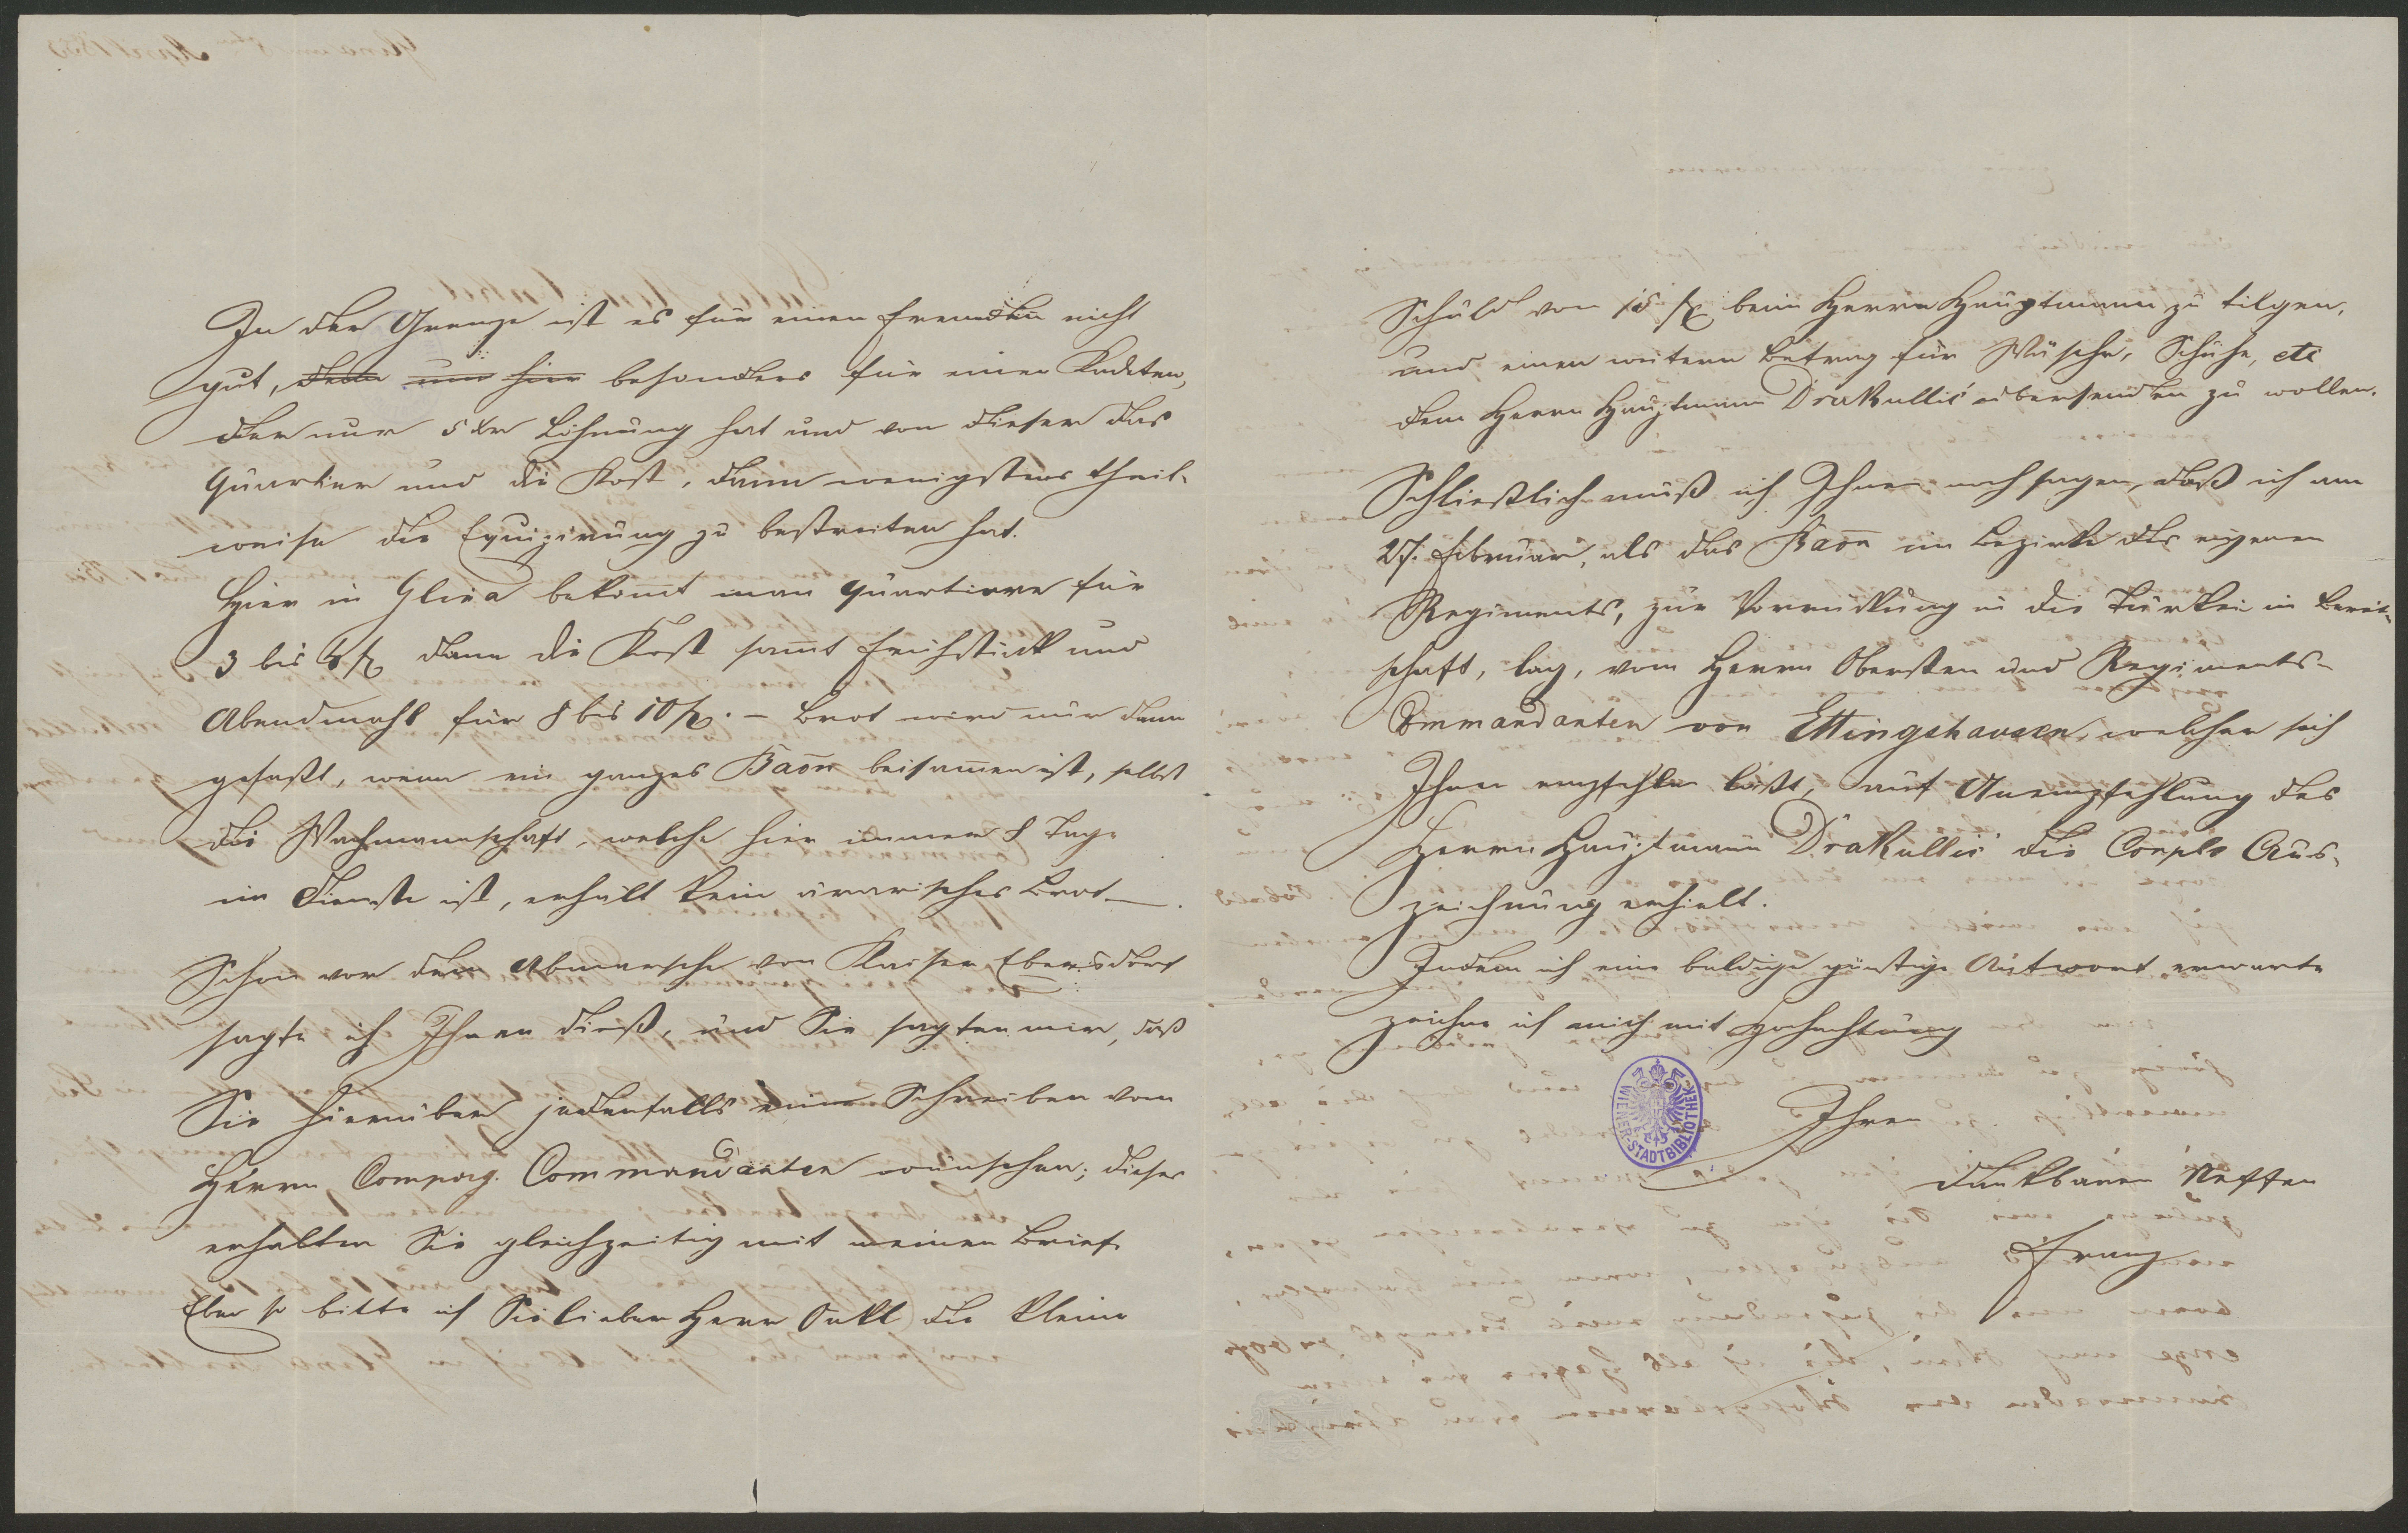 In der Grenze ist es für einen Fremden nicht
gut, denn nur hier besonders für einen Kadeten,
der nur 5 Xr Löhnung hat und von dieser das
Quartier und die Kost, dann wenigstens theil-
weise die Equipirung zu bestreiten hat.
Hier in Glina bekom̅t man Quartiere für
3 bis 4 fl dann die Kost sam̅t Frühstück und
Abendmahl für 8 bis 10 fl. – Brot wird nur dann
gefaßt, wenn ein ganzes Baon beisam̅en ist, selbst
die Wachmannschaft, welche hier immer 8 Tage
im Dienste ist, erhält kein ärarisches Brot –.
Schon vor dem Abmarsche von Kaiser Ebersdorf
sagte ich Ihnen dieß, und Sie sagten mir, daß
Sie hierüber jedenfalls ein Schreiben vom
Herrn Compag. Commandanten wünschen; dieses
erhalten Sie gleichzeitig mit meinen Brief.
Eben so bitte ich Sie lieber Herr Onkl die kleine
Schuld von 15 fl beim Herrn Hauptmann zu tilgen,
und einen weitern Betrag für Wäsche, Schuhe, etc
dem Herrn Hauptmann Drakullić übersenden zu wollen.
Schließlich muß ich Ihnen noch sagen, daß ich am
27. Februar, als das Baon im Bezirke des eigenen
Regiments, zur Vorrückung in die Türkei in Bereit-
schaft, lag, vom Herrn Obersten und Regiments-
Commandanten von Ettingshausen, welcher sich
Ihnen empfehlen läßt, auf Anempfehlung des
Herrn Hauptmann Drakullić die Corpls Aus-
zeichnung erhielt.
Indem ich eine baldige günstige Antwort erwarte
zeichne ich mich mit Hochachtung
WIENER-STADTBIBLIOTHEK
Ihren
dankbaren Neffen
Franz